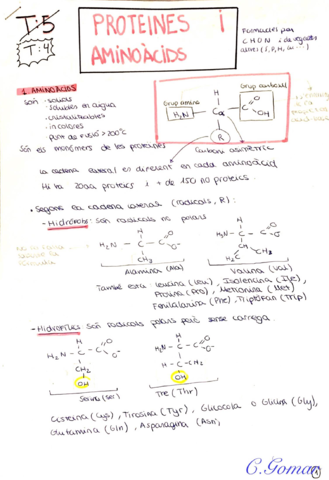 T:5
T:4
PROTEÏNES i
AMINOÀCIDS
Formades per
C H O N i de vegades
altres (S, P, H, ...)
1. AMINOÀCIDS
Són: · sòlides
· solubles en aigua
· cristal·litzables
· incolores
· punt de fusió > 200°C
Són els monòmers de les proteïnes
Grup amino
Grup carboxil
H
H₂N
Cα
C
O
OH
R
Carboni asimètric
La cadena lateral és diferent en cada aminoàcid
Hi ha 20aa proteics i + de 150 no proteics.
· Segons la cadena lateral (radicals, R):
- Hidròfobs: són radicals no polars
H
H₂N - C - C
O
O⁻
CH₃
Alanina (Ala)
H
H₂N - C - C
O
O⁻
CH
H₃C
CH₃
Valina (Val)
També està: Leucina (Leu), Isoleucina (Ile),
Prolina (Pro), Metionina (Met)
Fenilalanina (Phe), Triptòfan (Trp)
- Hidròfiles són radicals polars però sense càrrega
H
H₂N - C - C
O
O⁻
CH₂
OH
Serina (Ser)
H
H₂N - C - C
O
O⁻
H - C - CH₃
OH
Tre (Thr)
Cisteïna (Cys), Tirosina (Tyr), Glicocola o Glicina (Gly),
Glutamina (Gln), Asparagina (Asn),
C.Gomar
1